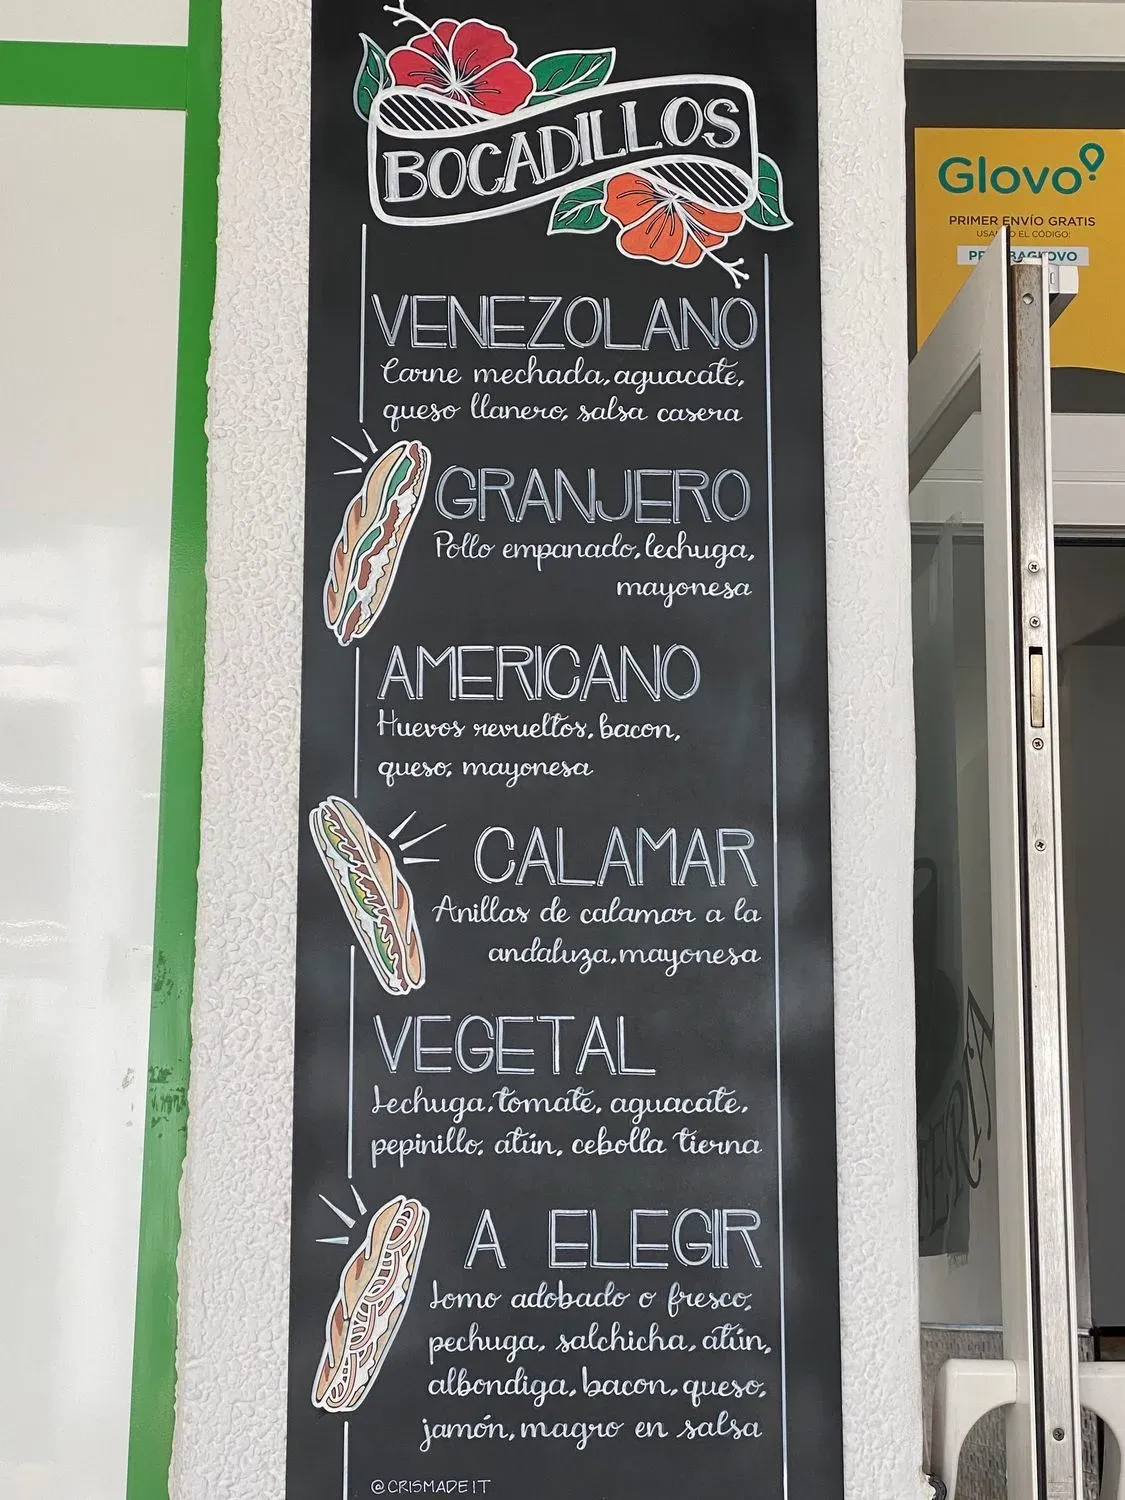 BOCADILLOS
VENEZOLANO
Carne mechada, aguacate,
queso llanero, salsa casera
GRANJERO
Pollo empanado, lechuga,
mayonesa
AMERICANO
Huevos revueltos, bacon,
queso, mayonesa
CALAMAR
Anillas de calamar a la
andaluza, mayonesa
VEGETAL
Lechuga, tomate, aguacate,
pepinillo, atún, cebolla tierna
A ELEGIR
Lomo adobado o fresco,
pechuga, salchicha, atún,
albondiga, bacon, queso,
jamón, magro en salsa
@CRISMADEIT
Glovo
PRIMER ENVÍO GRATIS
EL CÓDIGO: